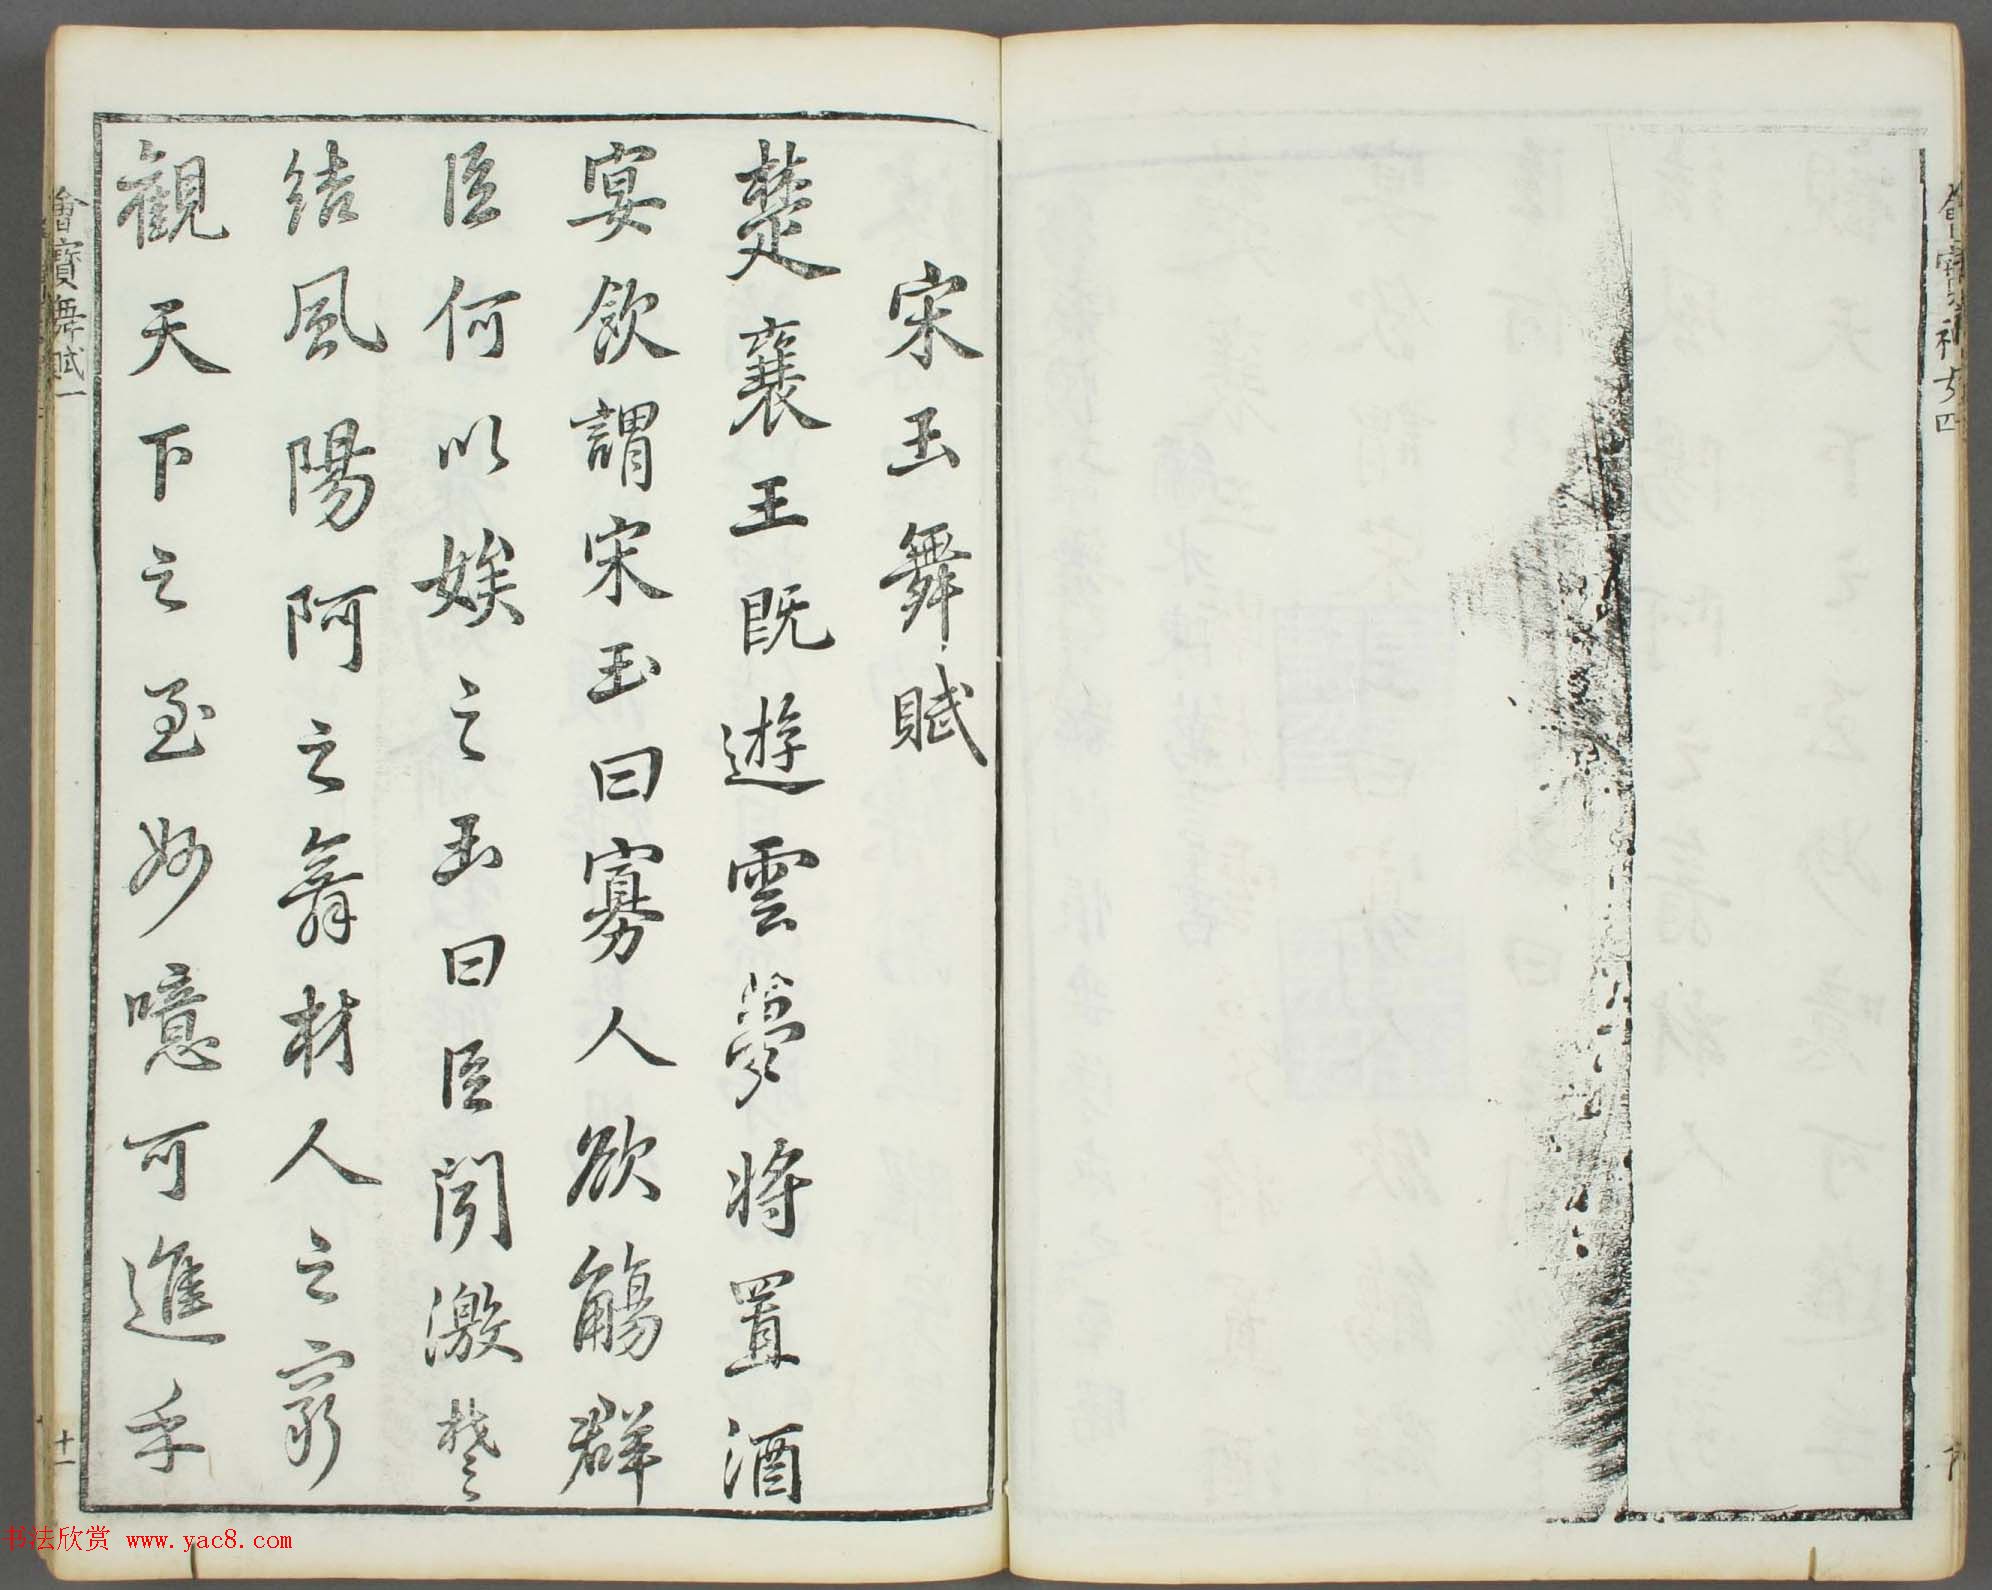 宋玉舞賦
楚襄王既遊雲夢將置酒
宴飲謂宋玉曰寡人欲觴群
臣何以娱之玉曰臣聞激楚
結風陽阿之舞材人之窮
觀天下之至妙噫可進乎
會寶舞賦一
十一
書法欣赏 www.yac8.com